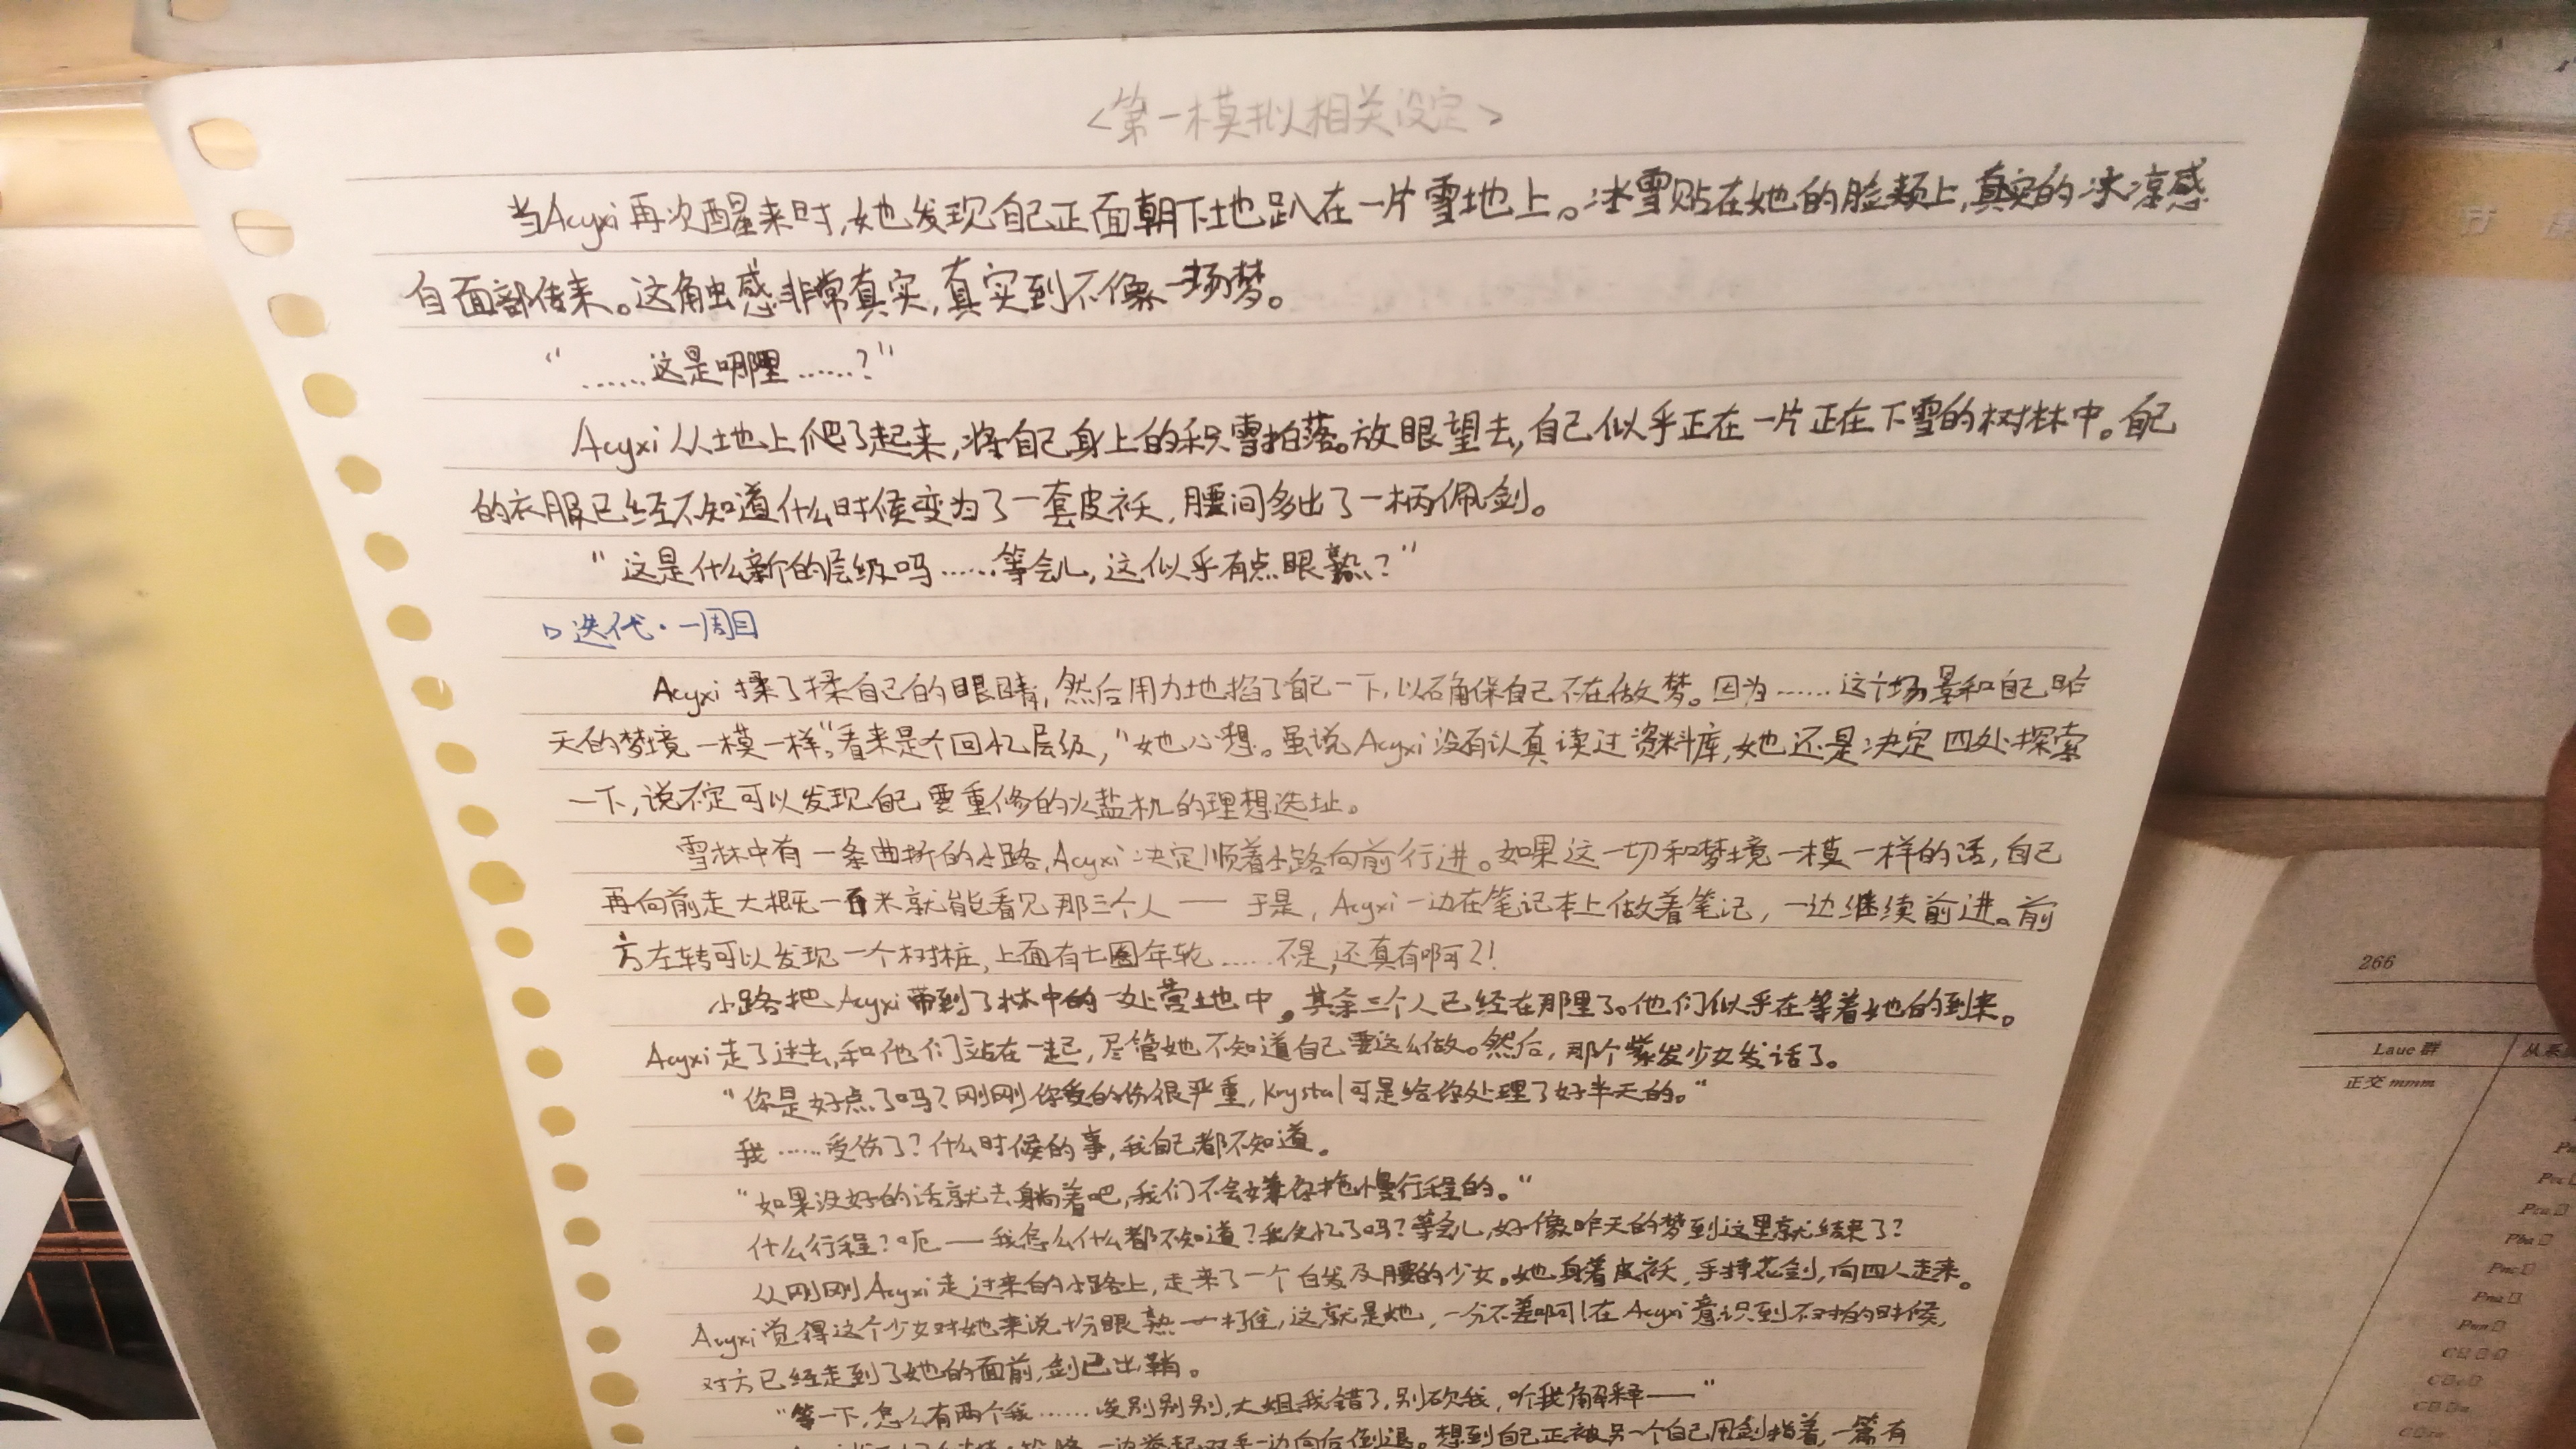 <第一模拟相关设定>
当Acyxi再次醒来时,她发现自己正面朝下地趴在一片雪地上。冰雪贴在她的脸颊上,真实的冰凉感
自面部传来。这触感非常真实,真实到不像一场梦。
“……这是哪里……?”
Acyxi从地上爬了起来,将自己身上的积雪拍落。放眼望去,自己似乎正在一片正在下雪的树林中。自己
的衣服已经不知道什么时候变为了一套皮袄,腰间多出了一柄佩剑。
“这是什么新的层级吗……等会儿,这似乎有点眼熟?”
▷迭代·一周目
Acyxi揉了揉自己的眼睛,然后用力地掐了自己一下,以确保自己不在做梦。因为……这个场景和自己昨
天的梦境一模一样,“看来是个回忆层级,”她心想。虽说Acyxi没有认真读过资料库,她还是决定四处探索
一下,说不定可以发现自己要重修的火盐机的理想选址。
雪林中有一条曲折的小路,Acyxi决定顺着小路向前行进。如果这一切和梦境一模一样的话,自己
再向前走大概一百米就能看见那三个人——于是,Acyxi一边在笔记本上做着笔记,一边继续前进。前
方左转可以发现一个树桩,上面有七圈年轮……不是,还真有啊?!
小路把Acyxi带到了林中的一处营地中。其余三个人已经在那里了。他们似乎在等着她的到来。
Acyxi走了过去,和他们站在一起,尽管她不知道自己要这么做。然后,那个紫发少女发话了。
“你是好点了吗?刚刚你受的伤很严重,Krystal可是给你处理了好半天的。”
我……受伤了?什么时候的事,我自己都不知道。
“如果没好的话就去躺着吧,我们不会嫌你拖慢行程的。”
什么行程?呃——我怎么什么都不知道?我失忆了吗?等会儿,好像昨天的梦到这里就结束了?
从刚刚Acyxi走过来的小路上,走来了一个白发及腰的少女。她身着皮袄,手持花剑,向四人走来。
Acyxi觉得这个少女对她来说十分眼熟——打住,这就是她,一分不差啊!在Acyxi意识到不对的时候,
对方已经走到了她的面前,剑已出鞘。
“等一下,怎么有两个我……诶别别别,大姐我错了,别砍我,听我解释——”
一边举起双手一边向后倒退。想到自己正被另一个自己用剑指着,一篇有
266
Laue 群
正交 mmm